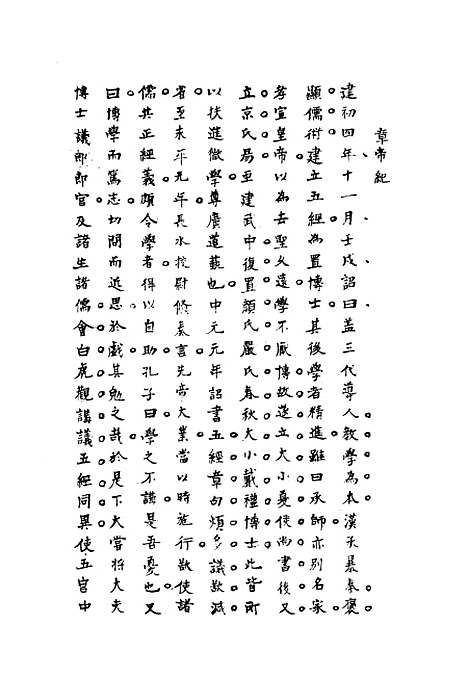 章帝紀
建初四年、十一月、壬戌、詔曰、盖三代導人、教學為本。漢承暴秦、褒
顯儒術。建立五經、為置博士。其後學者精進、雖曰承師、亦別名家。
孝宣皇帝以為去聖久遠。學不厭博。故遂立大小夏侯尚書。後又
立京氏易。至建武中。復置顏氏嚴氏春秋。大小戴禮博士。此皆所
以扶進微學。尊廣道藝也。中元元年詔書。五經章句煩多。議欲減
省。至永平元年。長水校尉儵奏言。先帝大業。當以時施行。欲使諸
儒共正經義。頗令學者得以自助。孔子曰。學之不講。是吾憂也。又
曰。博學而篤志。切問而近思。於戲。其勉之哉。於是下大常。將大夫
博士議郎郎官及諸生諸儒。會白虎觀。講議五經同異。使五官中